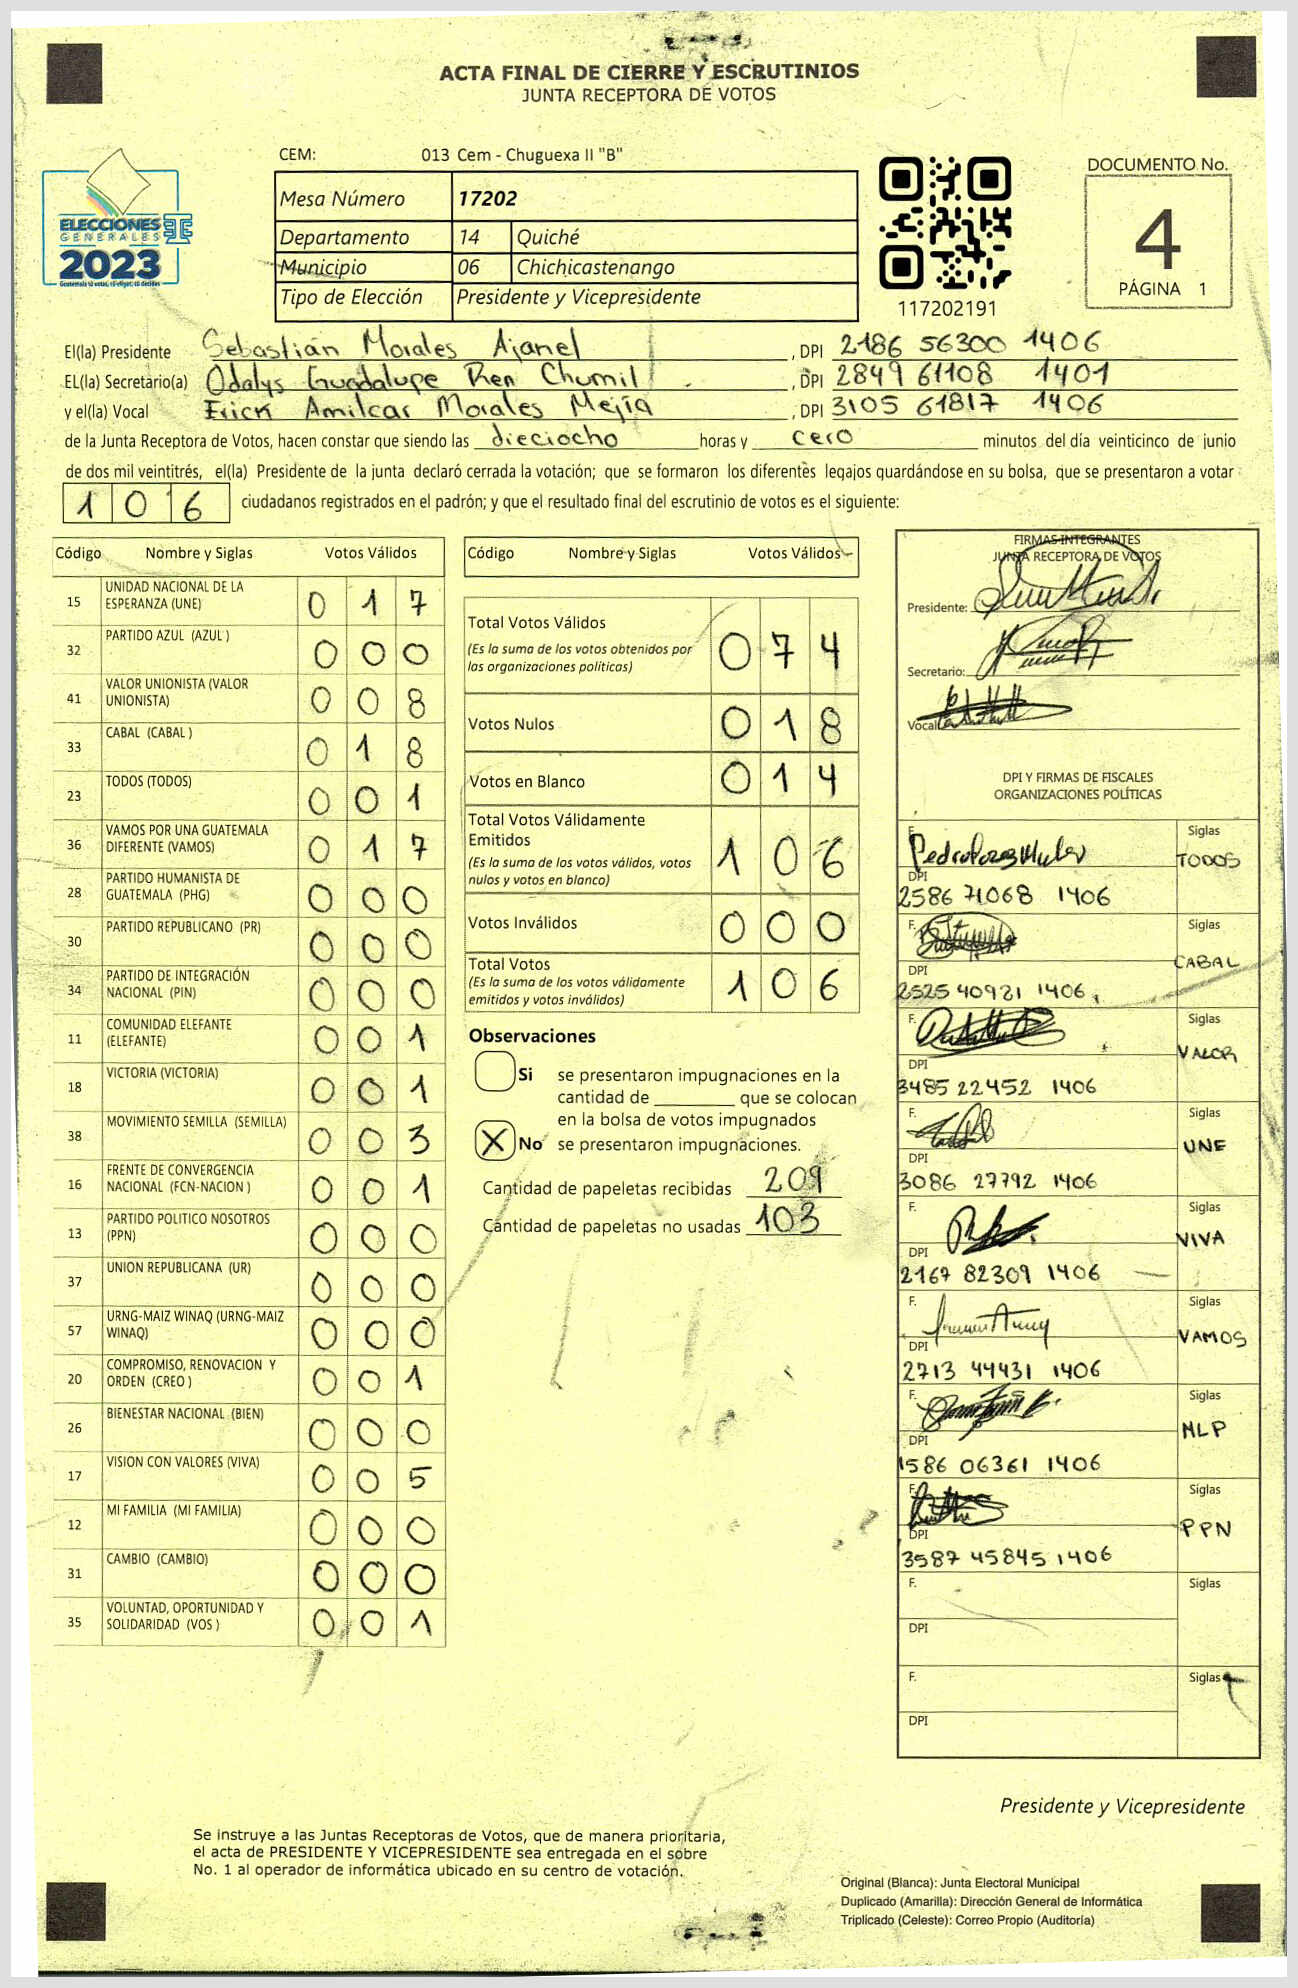 ACTA FINAL DE CIERRE Y ESCRUTINIOS
JUNTA RECEPTORA DE VOTOS
CEM: 013 Cem - Chuguexa II "B"
ELECCIONES
GENERALES
2023
Mesa Número 17202
Departamento 14 Quiché
Municipio 06 Chichicastenango
Tipo de Elección Presidente y Vicepresidente
117202191
DOCUMENTO No.
4
PÁGINA 1
El(la) Presidente Sebastián Morales Ajanel, DPI 2186 56300 1406
EL(la) Secretario(a) Odalys Guadalupe Ren Chumil, DPI 2849 61108 1401
y el(la) Vocal Erick Amilcar Morales Mejía, DPI 3105 61817 1406
de la Junta Receptora de Votos, hacen constar que siendo las dieciocho horas y cero minutos del día veinticinco de junio
de dos mil veintitrés, el(la) Presidente de la junta declaró cerrada la votación; que se formaron los diferentes legajos guardándose en su bolsa, que se presentaron a votar
1 0 6 ciudadanos registrados en el padrón; y que el resultado final del escrutinio de votos es el siguiente:
Código Nombre y Siglas Votos Válidos
15 UNIDAD NACIONAL DE LA ESPERANZA (UNE) 0 1 7
32 PARTIDO AZUL (AZUL ) 0 0 0
41 VALOR UNIONISTA (VALOR UNIONISTA) 0 0 8
33 CABAL (CABAL ) 0 1 8
23 TODOS (TODOS) 0 0 1
36 VAMOS POR UNA GUATEMALA DIFERENTE (VAMOS) 0 1 7
28 PARTIDO HUMANISTA DE GUATEMALA (PHG) 0 0 0
30 PARTIDO REPUBLICANO (PR) 0 0 0
34 PARTIDO DE INTEGRACIÓN NACIONAL (PIN) 0 0 0
11 COMUNIDAD ELEFANTE (ELEFANTE) 0 0 1
18 VICTORIA (VICTORIA) 0 0 1
38 MOVIMIENTO SEMILLA (SEMILLA) 0 0 3
16 FRENTE DE CONVERGENCIA NACIONAL (FCN-NACION ) 0 0 1
13 PARTIDO POLITICO NOSOTROS (PPN) 0 0 0
37 UNION REPUBLICANA (UR) 0 0 0
57 URNG-MAIZ WINAQ (URNG-MAIZ WINAQ) 0 0 0
20 COMPROMISO, RENOVACION Y ORDEN (CREO ) 0 0 1
26 BIENESTAR NACIONAL (BIEN) 0 0 0
17 VISION CON VALORES (VIVA) 0 0 5
12 MI FAMILIA (MI FAMILIA) 0 0 0
31 CAMBIO (CAMBIO) 0 0 0
35 VOLUNTAD, OPORTUNIDAD Y SOLIDARIDAD (VOS ) 0 0 1
Código Nombre y Siglas Votos Válidos
Total Votos Válidos 0 7 4
(Es la suma de los votos obtenidos por
las organizaciones políticas)
Votos Nulos 0 1 8
Votos en Blanco 0 1 4
Total Votos Válidamente
Emitidos 1 0 6
(Es la suma de los votos válidos, votos
nulos y votos en blanco)
Votos Inválidos 0 0 0
Total Votos 1 0 6
(Es la suma de los votos válidamente
emitidos y votos inválidos)
Observaciones
Si se presentaron impugnaciones en la
cantidad de ________ que se colocan
en la bolsa de votos impugnados
X No se presentaron impugnaciones.
Cantidad de papeletas recibidas 209
Cantidad de papeletas no usadas 103
FIRMAS INTEGRANTES
JUNTA RECEPTORA DE VOTOS
Presidente:
Secretario:
Vocal
DPI Y FIRMAS DE FISCALES
ORGANIZACIONES POLÍTICAS
F. Siglas
TODOS
DPI
2586 71068 1406
F. Siglas
CABAL
DPI
2525 40921 1406
F. Siglas
VALOR
DPI
3485 22452 1406
F. Siglas
UNE
DPI
3086 27792 1406
F. Siglas
VIVA
DPI
2167 82309 1406
F. Siglas
VAMOS
DPI
2713 44431 1406
F. Siglas
MLP
DPI
1586 06361 1406
F. Siglas
PPN
DPI
3587 45845 1406
F. Siglas
DPI
F. Siglas
DPI
Presidente y Vicepresidente
Se instruye a las Juntas Receptoras de Votos, que de manera prioritaria,
el acta de PRESIDENTE Y VICEPRESIDENTE sea entregada en el sobre
No. 1 al operador de informática ubicado en su centro de votación.
Original (Blanca): Junta Electoral Municipal
Duplicado (Amarilla): Dirección General de Informática
Triplicado (Celeste): Correo Propio (Auditoría)